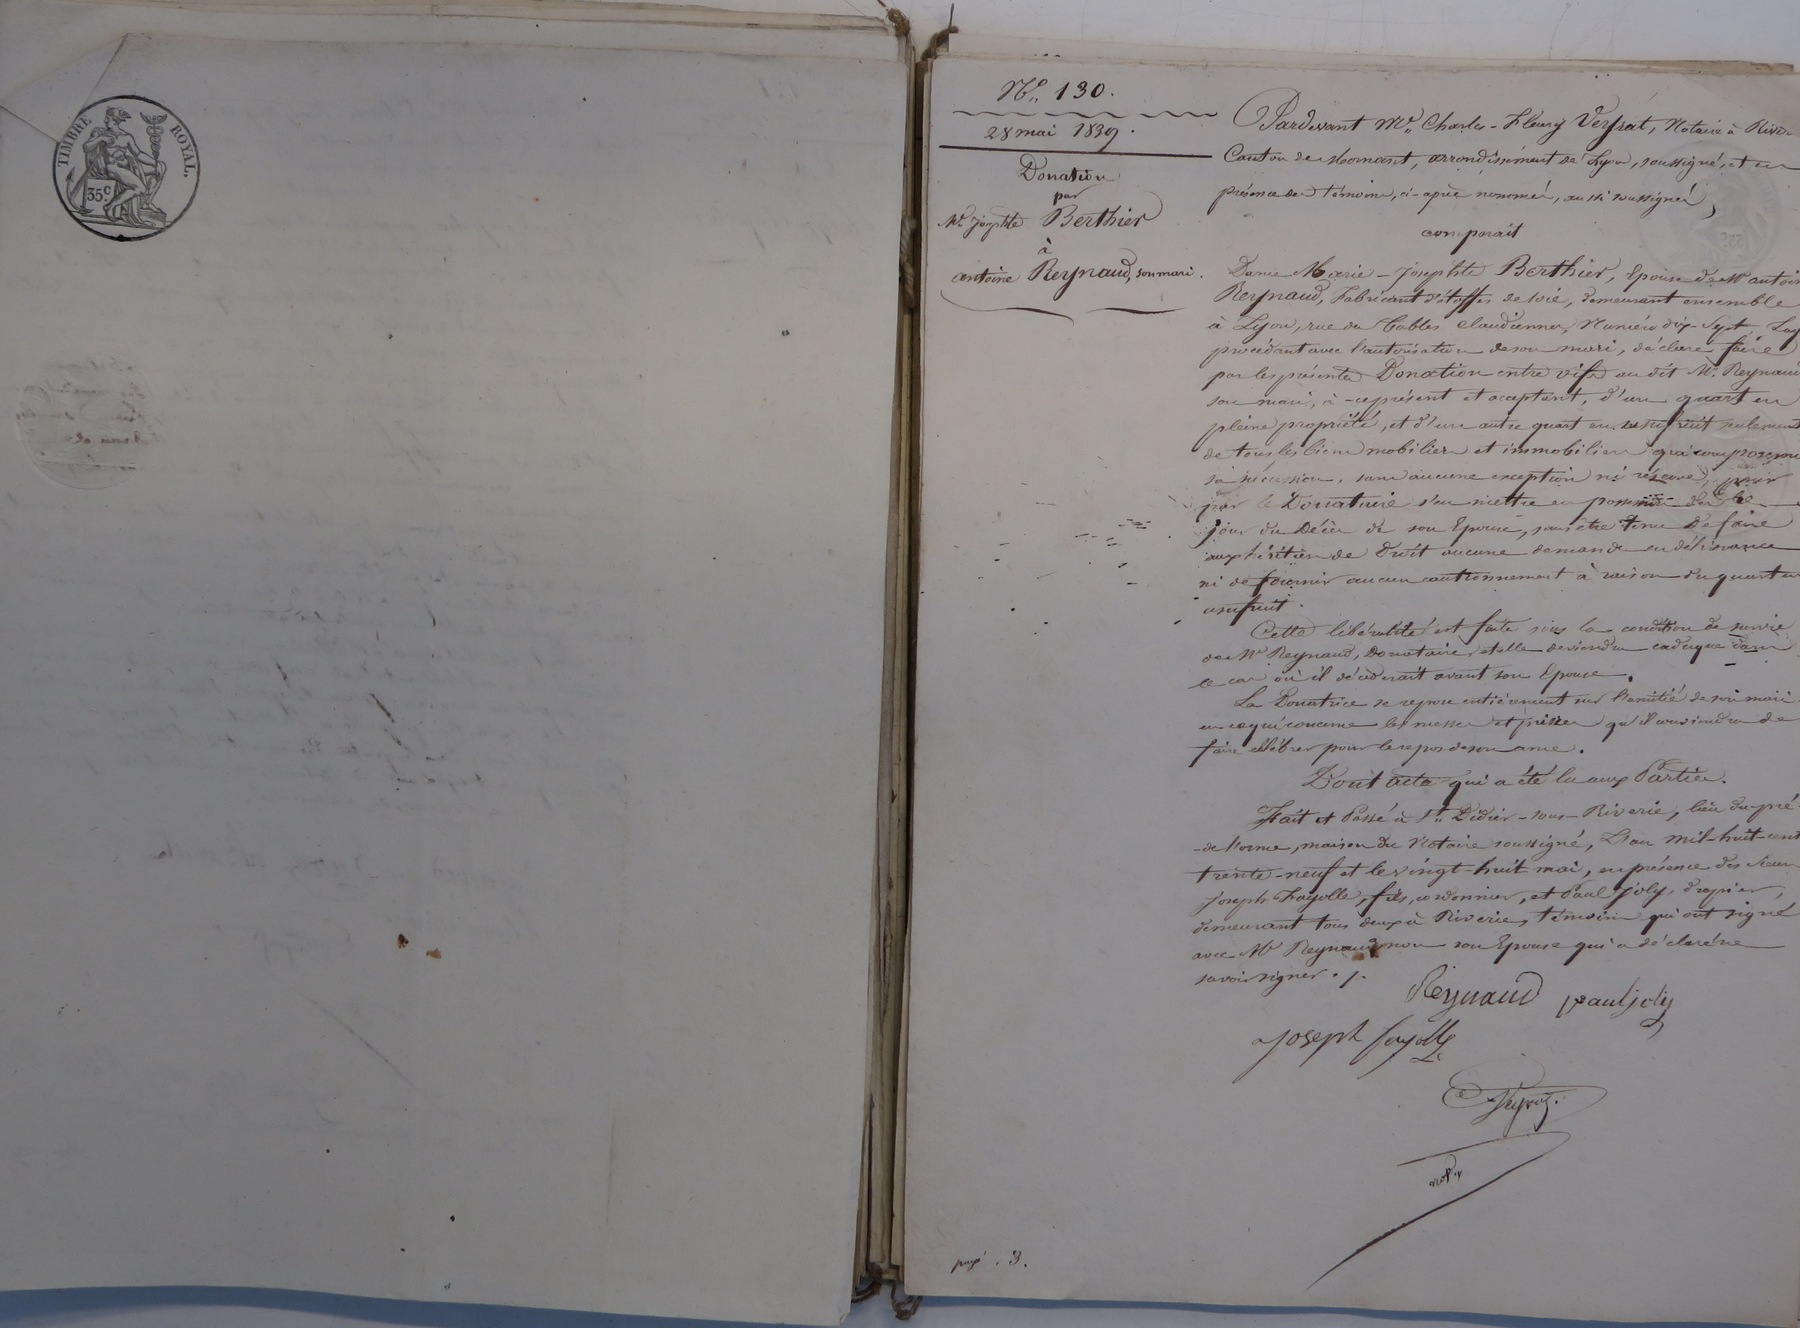 TIMBRE ROYAL.
35 c.
N° 130.
28 mai 1839.
Donation
par
Me. Josephte Berthier
à
antoine Reynaud, son mari.
Pardevant Me. Charles-Fleury Veyrat, Notaire à River
Canton de Mornant, arrondissement de Lyon, soussigné, et en
présence des témoins, ci-après nommés, aussi soussignés,
comparait
Dame Marie-Josephte Berthier, Epouse de Mr antoin
Reynaud, Fabricant d'étoffes de soie, demeurant ensemble
à Lyon, rue des Tables claudiennes, Numéro dix-Sept, Laq
procédant avec l'autorisation de son mari, déclare faire
par les présentes Donation entre vifs au dit Mr. Reynaud
son mari, à-ce présent et acceptant, d'un quart en
pleine propriété, et d'un autre quart en usufruit seulement
de tous les biens mobiliers et immobiliers qui composeront
sa succession, sans aucune exception ni réserve, pour
par le Donataire s'en mettre en possession dès le
jour du Décès de son Epouse, sans être tenu de faire
aux héritiers de Droit aucune demande en délivrance
ni de fournir aucun cautionnement à raison du quart en
usufruit.
Cette libéralité est faite sous la condition de survie
de Mr Reynaud, Donataire, et elle deviendra caduque dans
le cas où il décéderait avant son Epouse.
La Donatrice se repose entièrement sur l'amitié de son mari
en ce qui concerne les messes et prières qu'il conviendra de
faire célébrer pour le repos de son ame.
Dont acte qui a été lu aux Parties.
Fait et Passé à St. Didier-sous-Riverie, lieu du-pré-
-de l'orme, maison du Notaire soussigné, L'an mil-huit-cent
trente-neuf et le vingt-huit mai, en présence des sieurs
Joseph Fayolle, fils, cordonnier, et Paul Joly, drapier,
demeurant tous deux à Riverie, témoins qui ont signé
avec Mr Reynaud non son Epouse qui a déclaré ne
savoir signer. /.
Reynaud paul joly
Joseph fayolle
Veyrat.
payé. 3.